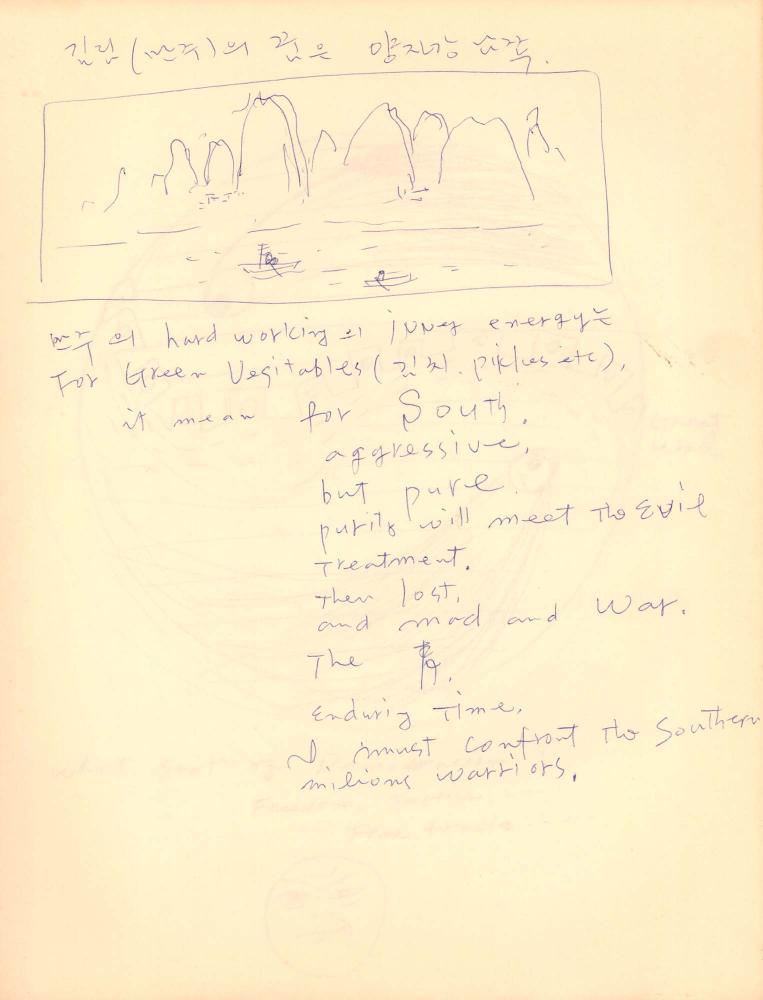 길림 (만주)의 꿈은 양자강 남쪽.
만주의 hard working의 inner energy는
For Green Vegitables (김치. pikles etc),
it mean for South.
aggressive,
but pure.
purity will meet the Evil
Treatment.
Then lost,
and mad and War.
The
Enduring Time.
I must confront the Southern
milions warriors.